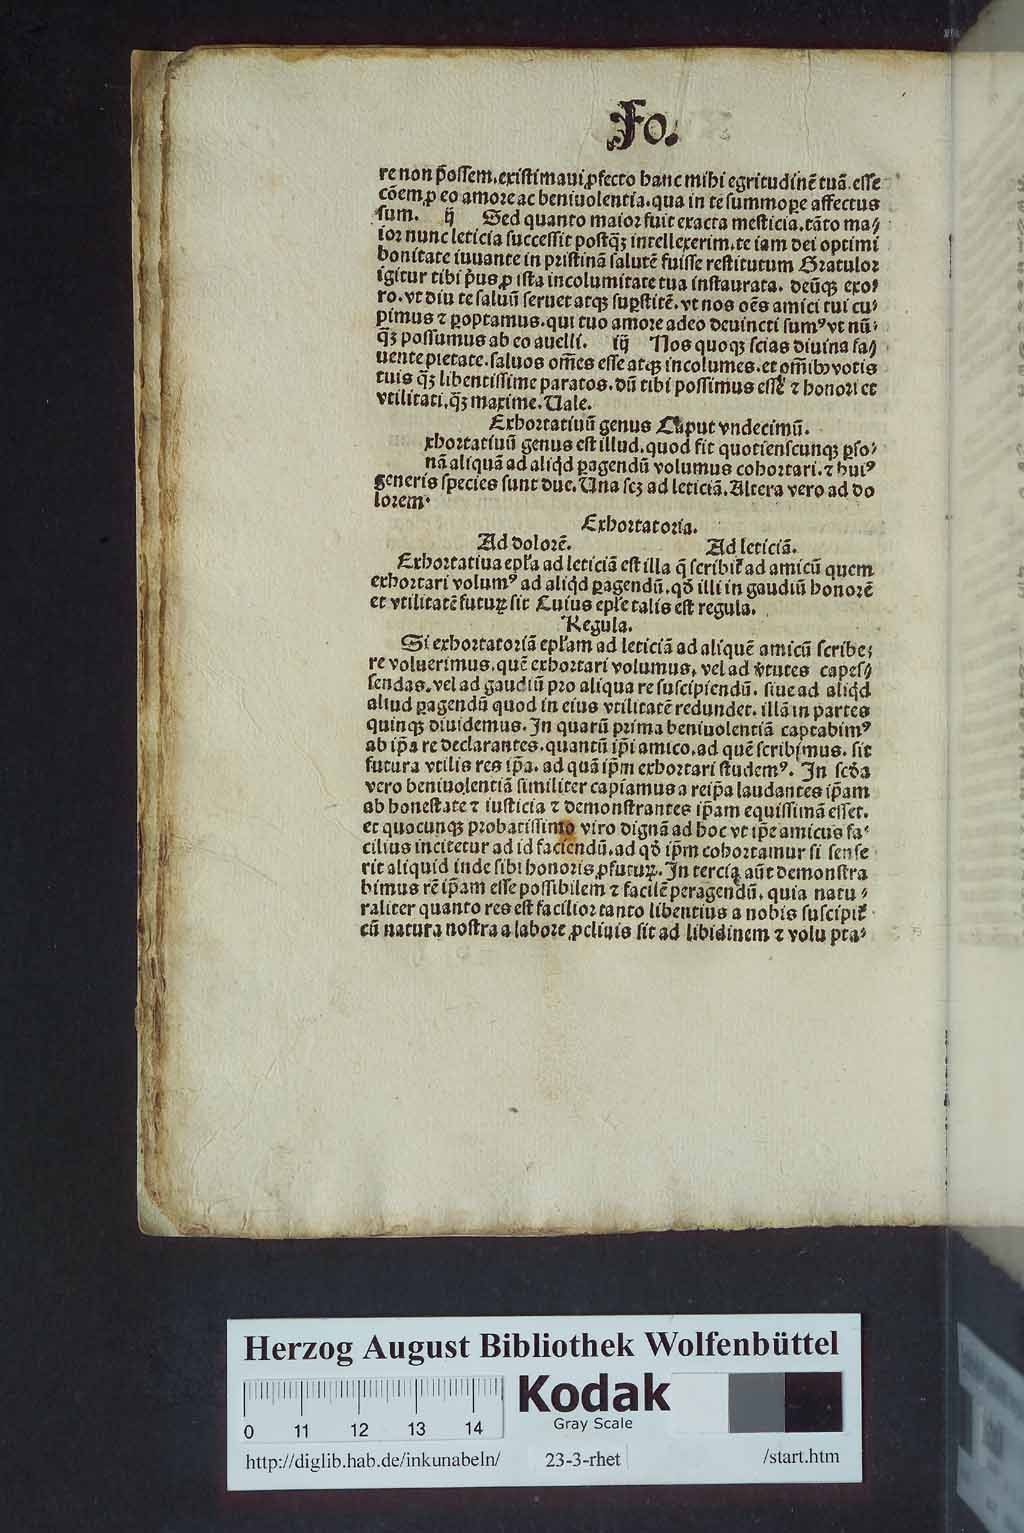 Fo.
re non p̄ossem. existimaui ꝓfecto hanc mihi egritudinē tuā esse
cōem ꝓ eo amore ac beniuolentia. qua in te summoꝑe affectus
sum. ij Sed quanto maior fuit exacta mesticia. tāto ma⸗
ior nunc leticia successit postqꝫ intellexerim. te iam dei optimi
bonitate iuuante in pristinā salutē fuisse restitutum Gratulor
igitur tibi p̄us ꝓ ista incolumitate tua instaurata. deūqꝫ exo⸗
ro. vt diu te saluū seruet atqꝫ suꝑstitē. vt nos oēs amici tui cu⸗
pimus ⁊ ꝑoptamus. qui tuo amore adeo deuincti sumꝰ vt nū⸗
qꝫ possumus ab eo auelli. iij Nos quoqꝫ scias diuina fa⸗
uente pietate. saluos om̄es esse atqꝫ incolumes. et om̄ibꝫ votis
tuis qꝫ libentissime paratos. dū tibi possimus esse ⁊ honori et
vtilitati. qꝫ maxime. Uale.
Exhortatiuū genus Caput vndecimū.
xhortatiuū genus est illud. quod fit quotienscunqꝫ ꝑso⸗
nā aliquā ad aliqd ꝑagendū volumus cohortari. ⁊ huiꝰ
generis species sunt due. Una scꝫ ad leticiā. Altera vero ad do
lorem.
Exhortatoria.
Ad dolorē. Ad leticiā.
Exhortatiua epl̄a ad leticiā est illa q̄ scribit᷑ ad amicū quem
exhortari volumꝰ ad aliqd ꝑagendū. qd̄ illi in gaudiū honorē
et vtilitatē futuꝝ sit Cuius epl̄e talis est regula.
Regula.
Si exhortatoriā epl̄am ad leticiā ad aliquē amicū scribe⸗
re voluerimus. quē exhortari volumus, vel ad v̓tutes capes⸗
sendas. vel ad gaudiū pro aliqua re suscipiendū. siue ad aliqd
aliud ꝑagendū quod in eius vtilitatē redundet. illā in partes
quinqꝫ diuidemus. In quarū prima beniuolentiā captabimꝰ
ab ip̄a re declarantes. quantū ip̄i amico. ad quē scribimus. sit
futura vtilis res ip̄a. ad quā ip̄m exhortari studemꝰ. In scd̄a
vero beniuolentiā similiter capiamus a re ip̄a laudantes ip̄am
ab honestate ⁊ iusticia ⁊ demonstrantes ip̄am equissimā esset.
et quocunqꝫ probatissimo viro dignā ad hoc vt ip̄e amicus fa⸗
cilius incitetur ad id faciendū. ad qd̄ ip̄m cohortamur si sense
rit aliquid inde sibi honoris ꝓfutuꝝ. In tercia aūt demonstra
bimus rē ip̄am esse possibilem ⁊ facilē peragendū. quia natu⸗
raliter quanto res est facilior tanto libentius a nobis suscipit᷑
cū natura nostra a labore ꝓcliuis sit ad libidinem ⁊ volu pta⸗
Herzog August Bibliothek Wolfenbüttel
Kodak
Gray Scale
0 11 12 13 14
http://diglib.hab.de/inkunabeln/ 23-3-rhet /start.htm